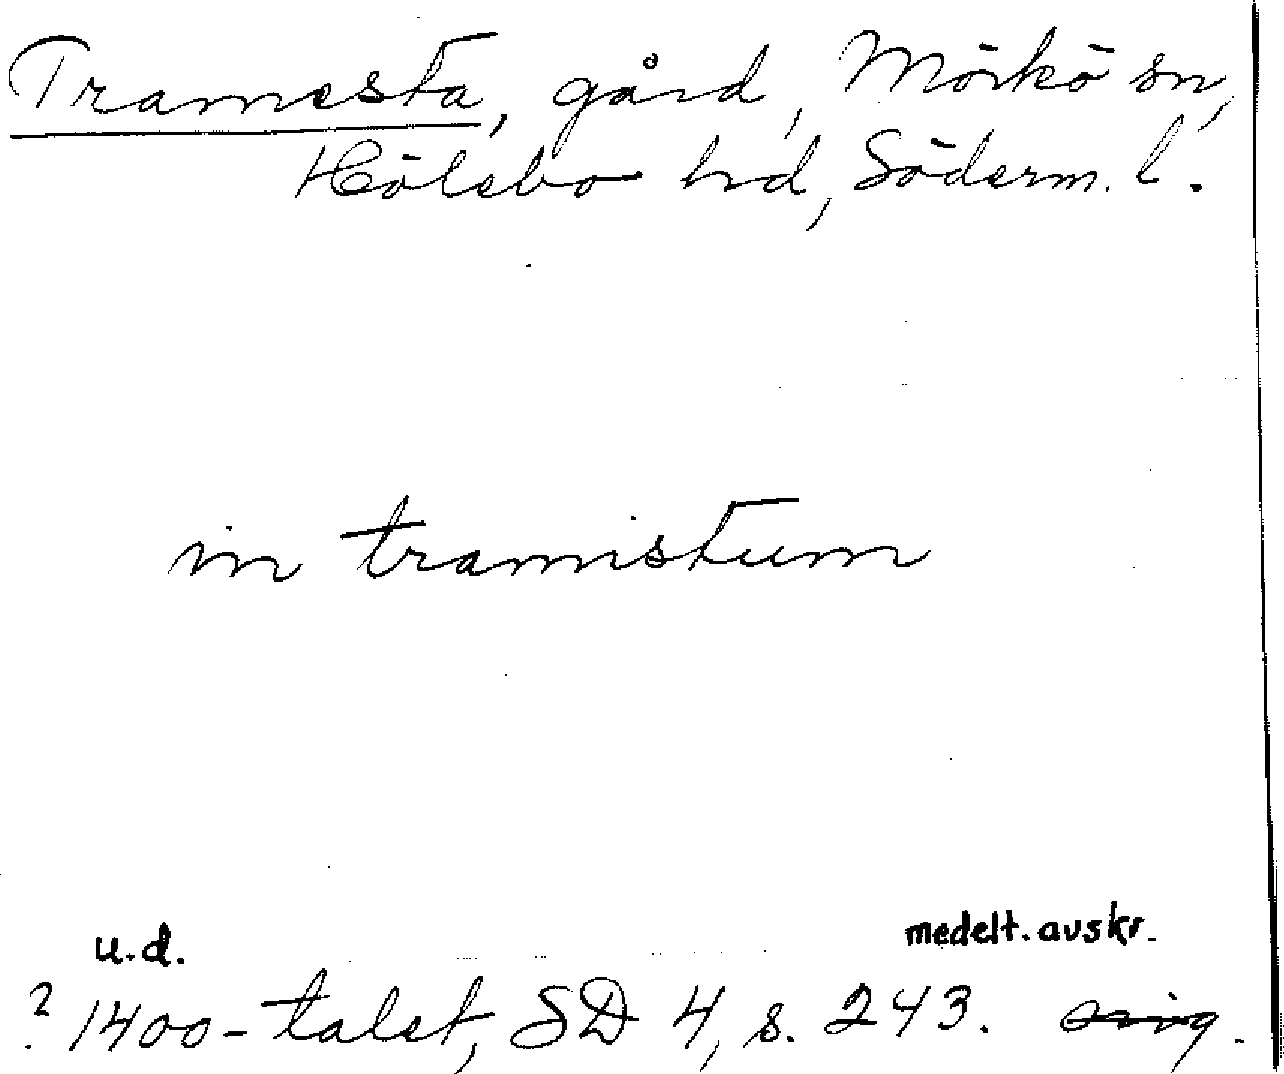 Tramesta, gård, Mörkö sn,
Hölebo hd, Söderm. l.
in tramistum
u.d. medelt. avskr.
? 1400-talet, SD 4, s. 243. orig.